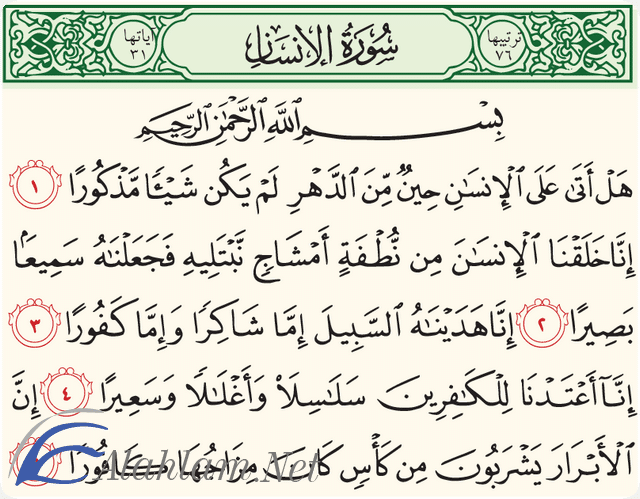 ترتيبها ٧٦ سُورَةُ الإِنسَانِ آياتها ٣١
بِسْمِ ٱللَّهِ ٱلرَّحْمَٰنِ ٱلرَّحِيمِ
هَلْ أَتَىٰ عَلَى ٱلْإِنسَٰنِ حِينٌ مِّنَ ٱلدَّهْرِ لَمْ يَكُن شَيْـًٔا مَّذْكُورًا ١
إِنَّا خَلَقْنَا ٱلْإِنسَٰنَ مِن نُّطْفَةٍ أَمْشَاجٍ نَّبْتَلِيهِ فَجَعَلْنَٰهُ سَمِيعًۢا
بَصِيرًا ٢ إِنَّا هَدَيْنَٰهُ ٱلسَّبِيلَ إِمَّا شَاكِرًا وَإِمَّا كَفُورًا ٣
إِنَّآ أَعْتَدْنَا لِلْكَٰفِرِينَ سَلَٰسِلَا۟ وَأَغْلَٰلًا وَسَعِيرًا ٤ إِنَّ
ٱلْأَبْرَارَ يَشْرَبُونَ مِن كَأْسٍ كَانَ مِزَاجُهَا كَافُورًا
Alahlam.Net